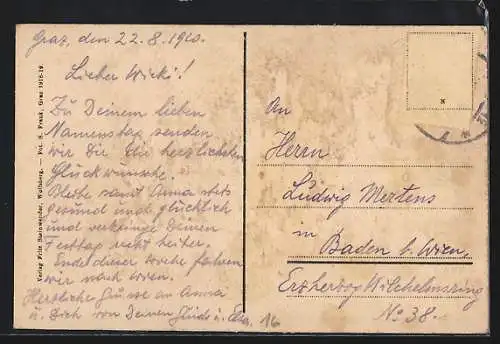 Graz, den 22.8.1920.
Lieber Wicki!
Zu Deinem lieben
Namenstag senden
wir Dir die herzlichsten
Glückwünsche.
Bleibe samt Anna stets
gesund und glücklich
und verbringe Deinen
Festtag recht heiter.
Ende dieser Woche fahren
wir nach Wien.
Herzliche Grüsse an Anna
u. Dich von Deinen
An
Herrn
Ludwig Mertens
in
Baden b. Wien,
Erzherzog Wilhelmsring
No 38.
16
Verlag Fritz Steinwender, Wolfsberg. — Pot. A. Frank, Graz 1918-19.